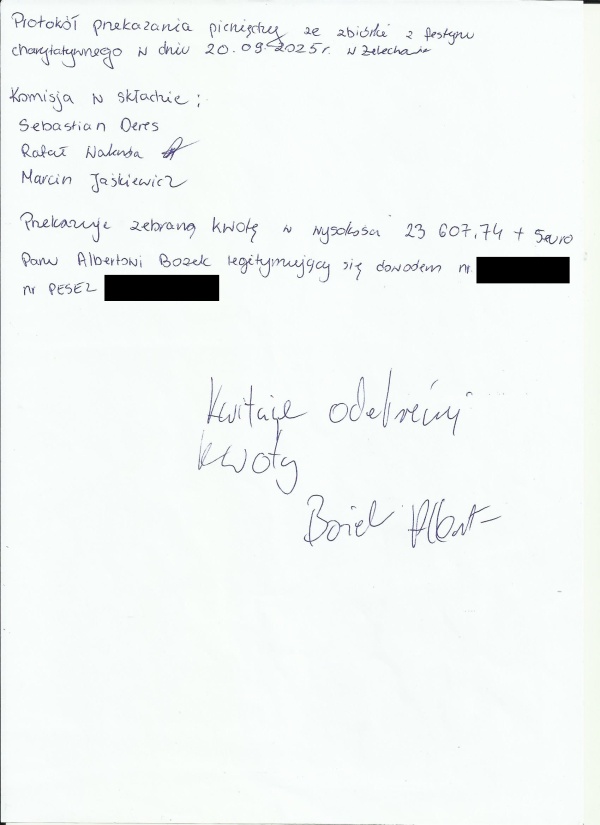 Protokół przekazania pieniędzy ze zbiórki z festynu
charytatywnego w dniu 20.09.2025r. w Żelechowie
Komisja w składzie:
Sebastian Deres
Rafał Walensa
Marcin Jaśkiewicz
Przekazuje zebraną kwotę w wysokości 23 607,74 + 5euro
Panu Albertowi Bozek legitymujący się dowodem nr
nr PESEL
Kwituje odebranej
kwoty
Bozek Albert